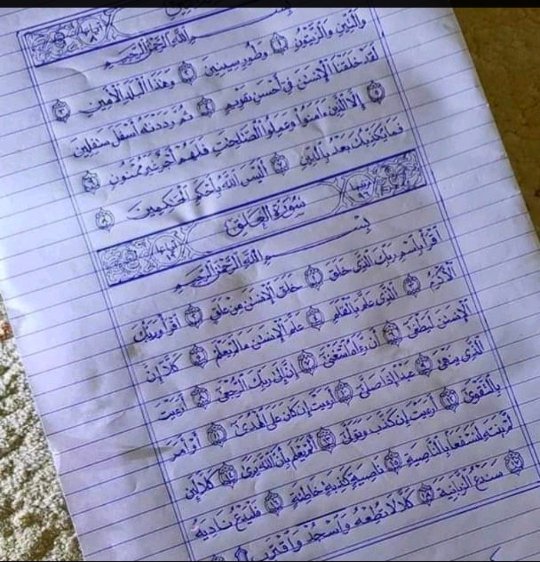 بسم الله الرحمن الرحيم
والتين والزيتون ١ وطور سينين ٢ وهذا البلد الأمين ٣
لقد خلقنا الإنسن في أحسن تقويم ٤ ثم رددنه أسفل سفلين
٥ إلا الذين ءامنوا وعملوا الصلحت فلهم أجر غير ممنون ٦
فما يكذبك بعد بالدين ٧ أليس الله بأحكم الحكمين ٨
سورة العلق
بسم الله الرحمن الرحيم
اقرأ باسم ربك الذي خلق ١ خلق الإنسن من علق ٢ اقرأ وربك
الأكرم ٣ الذي علم بالقلم ٤ علم الإنسن ما لم يعلم ٥ كلا إن
الإنسن ليطغى ٦ أن رءاه استغنى ٧ إن إلى ربك الرجعى ٨ أرءيت
الذي ينهى ٩ عبدا إذا صلى ١٠ أرءيت إن كان على الهدى ١١ أو أمر
بالتقوى ١٢ أرءيت إن كذب وتولى ١٣ ألم يعلم بأن الله يرى ١٤ كلا لئن
لم ينته لنسفعا بالناصية ١٥ ناصية كذبة خاطئة ١٦ فليدع ناديه
١٧ سندع الزبانية ١٨ كلا لا تطعه واسجد واقترب